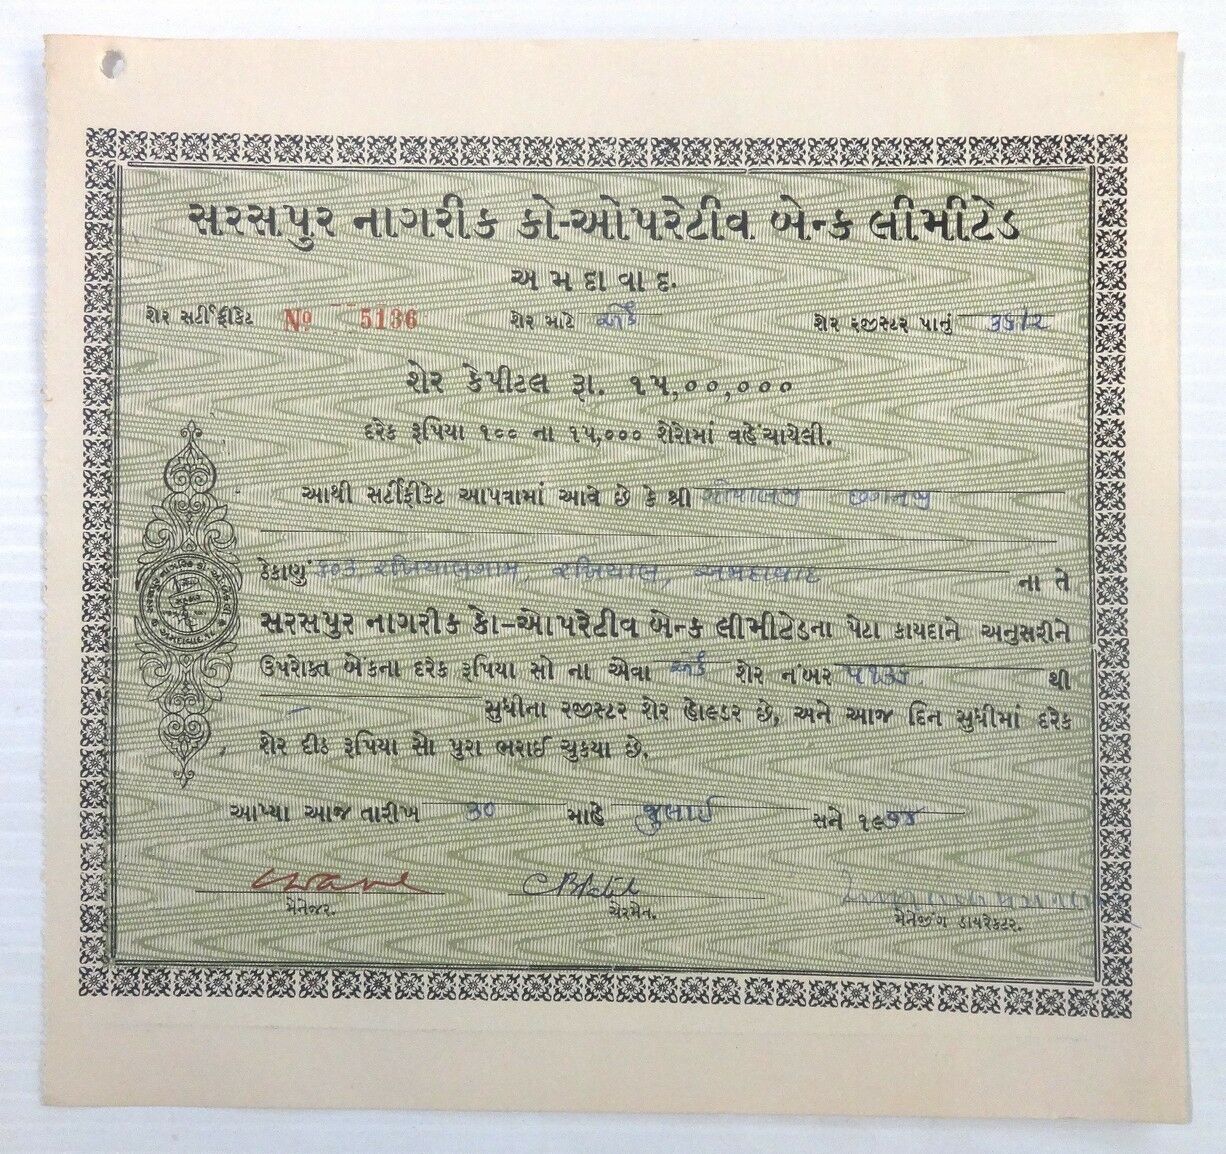 સરસપુર નાગરીક કો-ઓપરેટીવ બેન્ક લીમીટેડ
અમદાવાદ.
શેર સર્ટીફીકેટ No 5136 શેર માટે એક શેર રજીસ્ટર પાનું 36/2
શેર કેપીટલ રૂા. ૧૫,૦૦,૦૦૦
દરેક રૂપિયા ૧૦૦ ના ૧૫,૦૦૦ શેરોમાં વહેંચાયેલી.
આથી સર્ટીફીકેટ આપવામાં આવે છે કે શ્રી ગોપાલજી છગનજી
ઠેકાણું રખિયાલગામ, રખિયાલ, અમદાવાદ ના તે
સરસપુર નાગરીક કો-ઓપરેટીવ બેન્ક લીમીટેડના પેટા કાયદાને અનુસરીને
ઉપરોક્ત બેંકના દરેક રૂપિયા સો ના એવા એક શેર નંબર ૫૧૩૬ થી
સુધીના રજીસ્ટર શેર હોલ્ડર છે, અને આજ દિન સુધીમાં દરેક
શેર દીઠ રૂપિયા સો પુરા ભરાઈ ચુકયા છે.
આપ્યા આજ તારીખ 30 માહે જુલાઈ સને ૧૯૭૪
મેનેજર. ચેરમેન. મેનેજીંગ ડાયરેકટર.